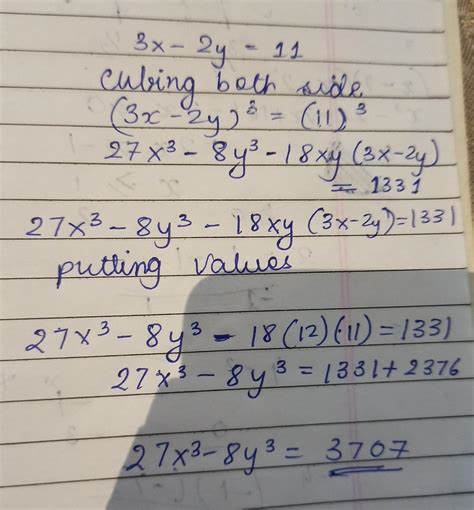 3x - 2y = 11
cubing both side
(3x - 2y)³ = (11)³
27x³ - 8y³ - 18xy (3x-2y)
= 1331
27x³ - 8y³ - 18xy (3x-2y) = 1331
putting values
27x³ - 8y³ - 18(12)(11) = 1331
27x³ - 8y³ = 1331 + 2376
27x³ - 8y³ = 3707